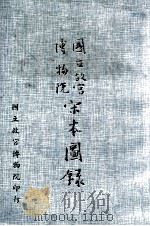 國立故宮
博物院
宋本圖錄
國立故宮博物院印行